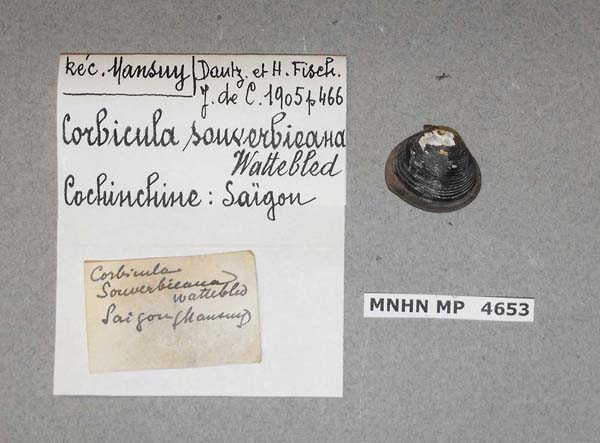 réc. Mansuy / Dautz. et H. Fisch.
J. de C. 1905 p 466
Corbicula souverbieana
Wattebled
Cochinchine : Saïgon
Corbicula
Souverbieana
Wattebled
Saigon (Mansuy)
MNHN MP 4653